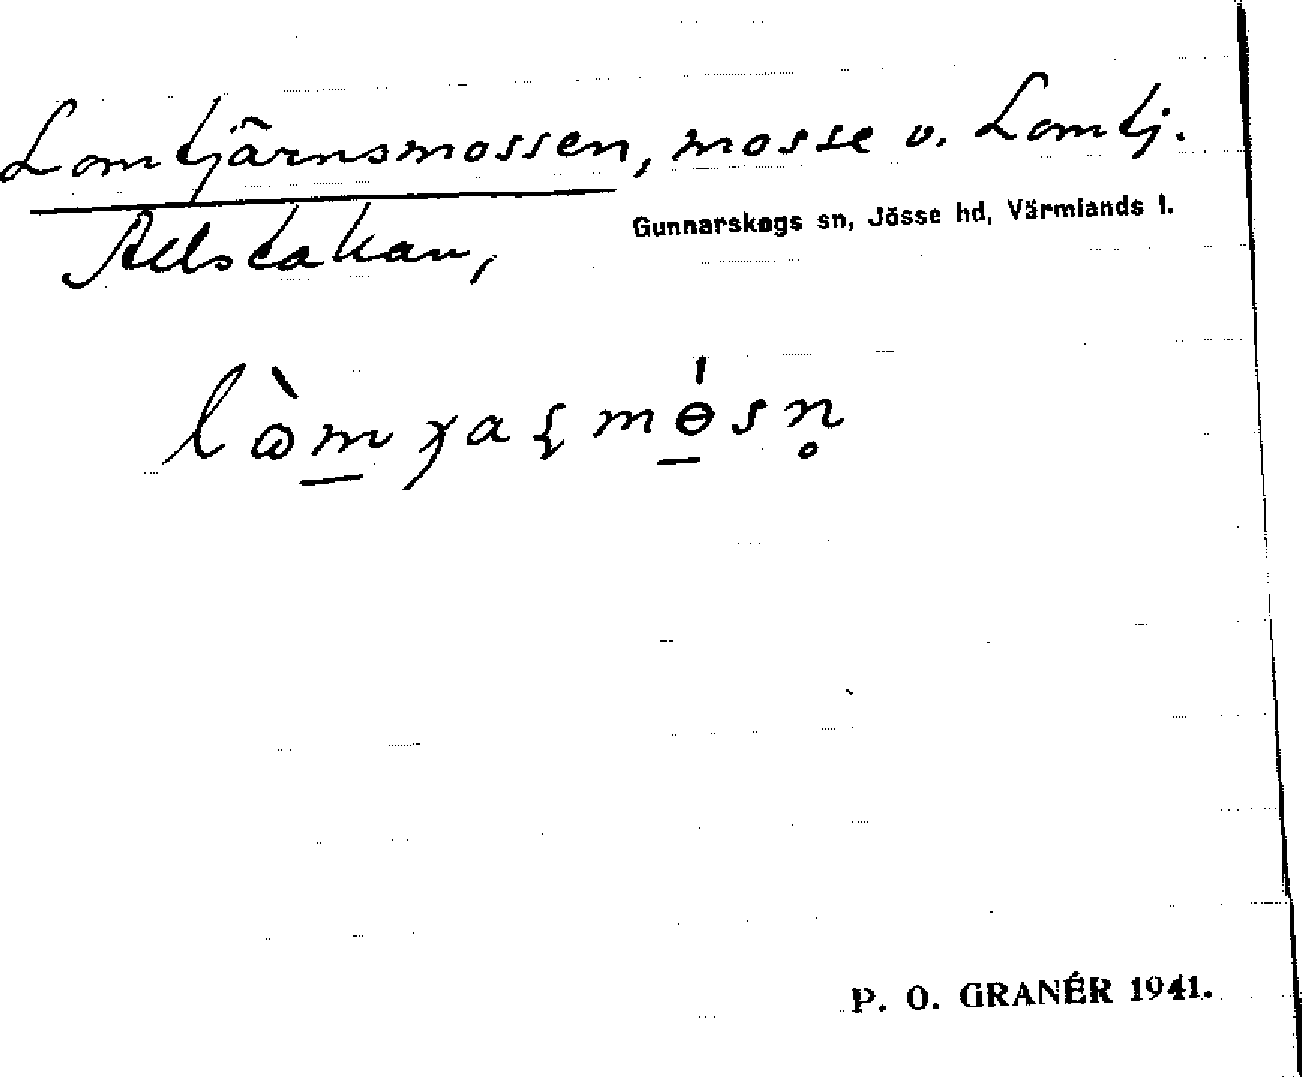 Lomtjärnsmossen, mosse v. Lomtj.
Gunnarskogs sn, Jösse hd, Värmlands l.
Allstakan,
P. O. GRANÉR 1941.